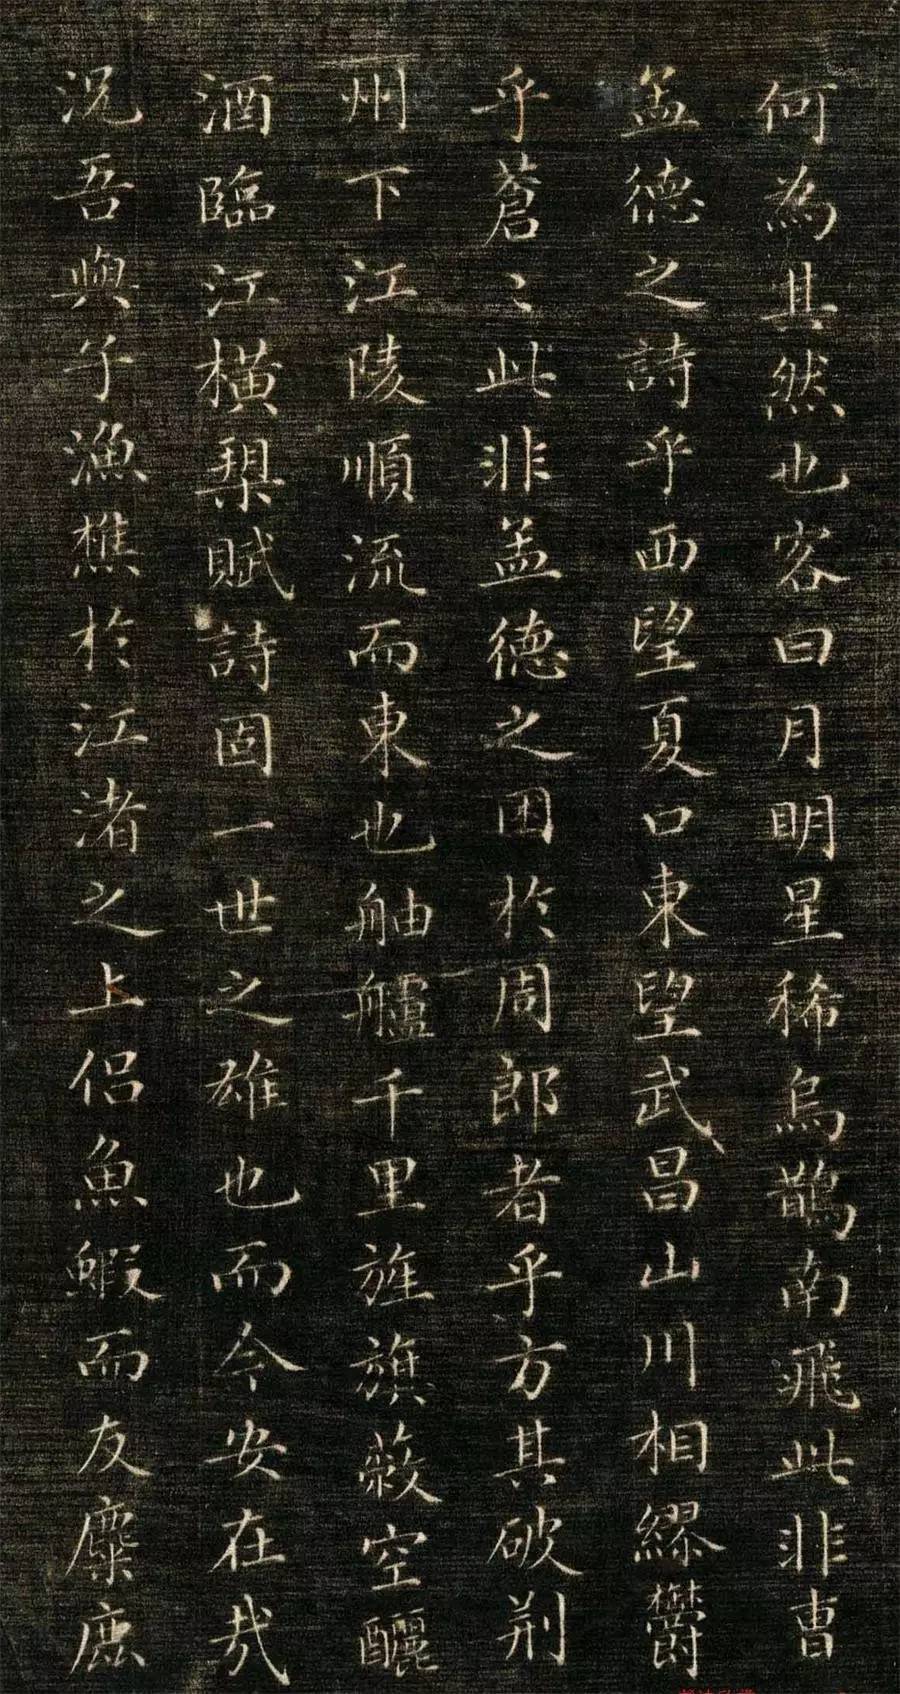 何為其然也客曰月明星稀烏鵲南飛此非曹
孟德之詩乎西望夏口東望武昌山川相繆欝
乎蒼〻此非孟德之困於周郎者乎方其破荆
州下江陵順流而東也舳艫千里旌旗蔽空釃
酒臨江橫槊賦詩固一世之雄也而今安在哉
況吾與子漁樵於江渚之上侣魚鰕而友麋鹿